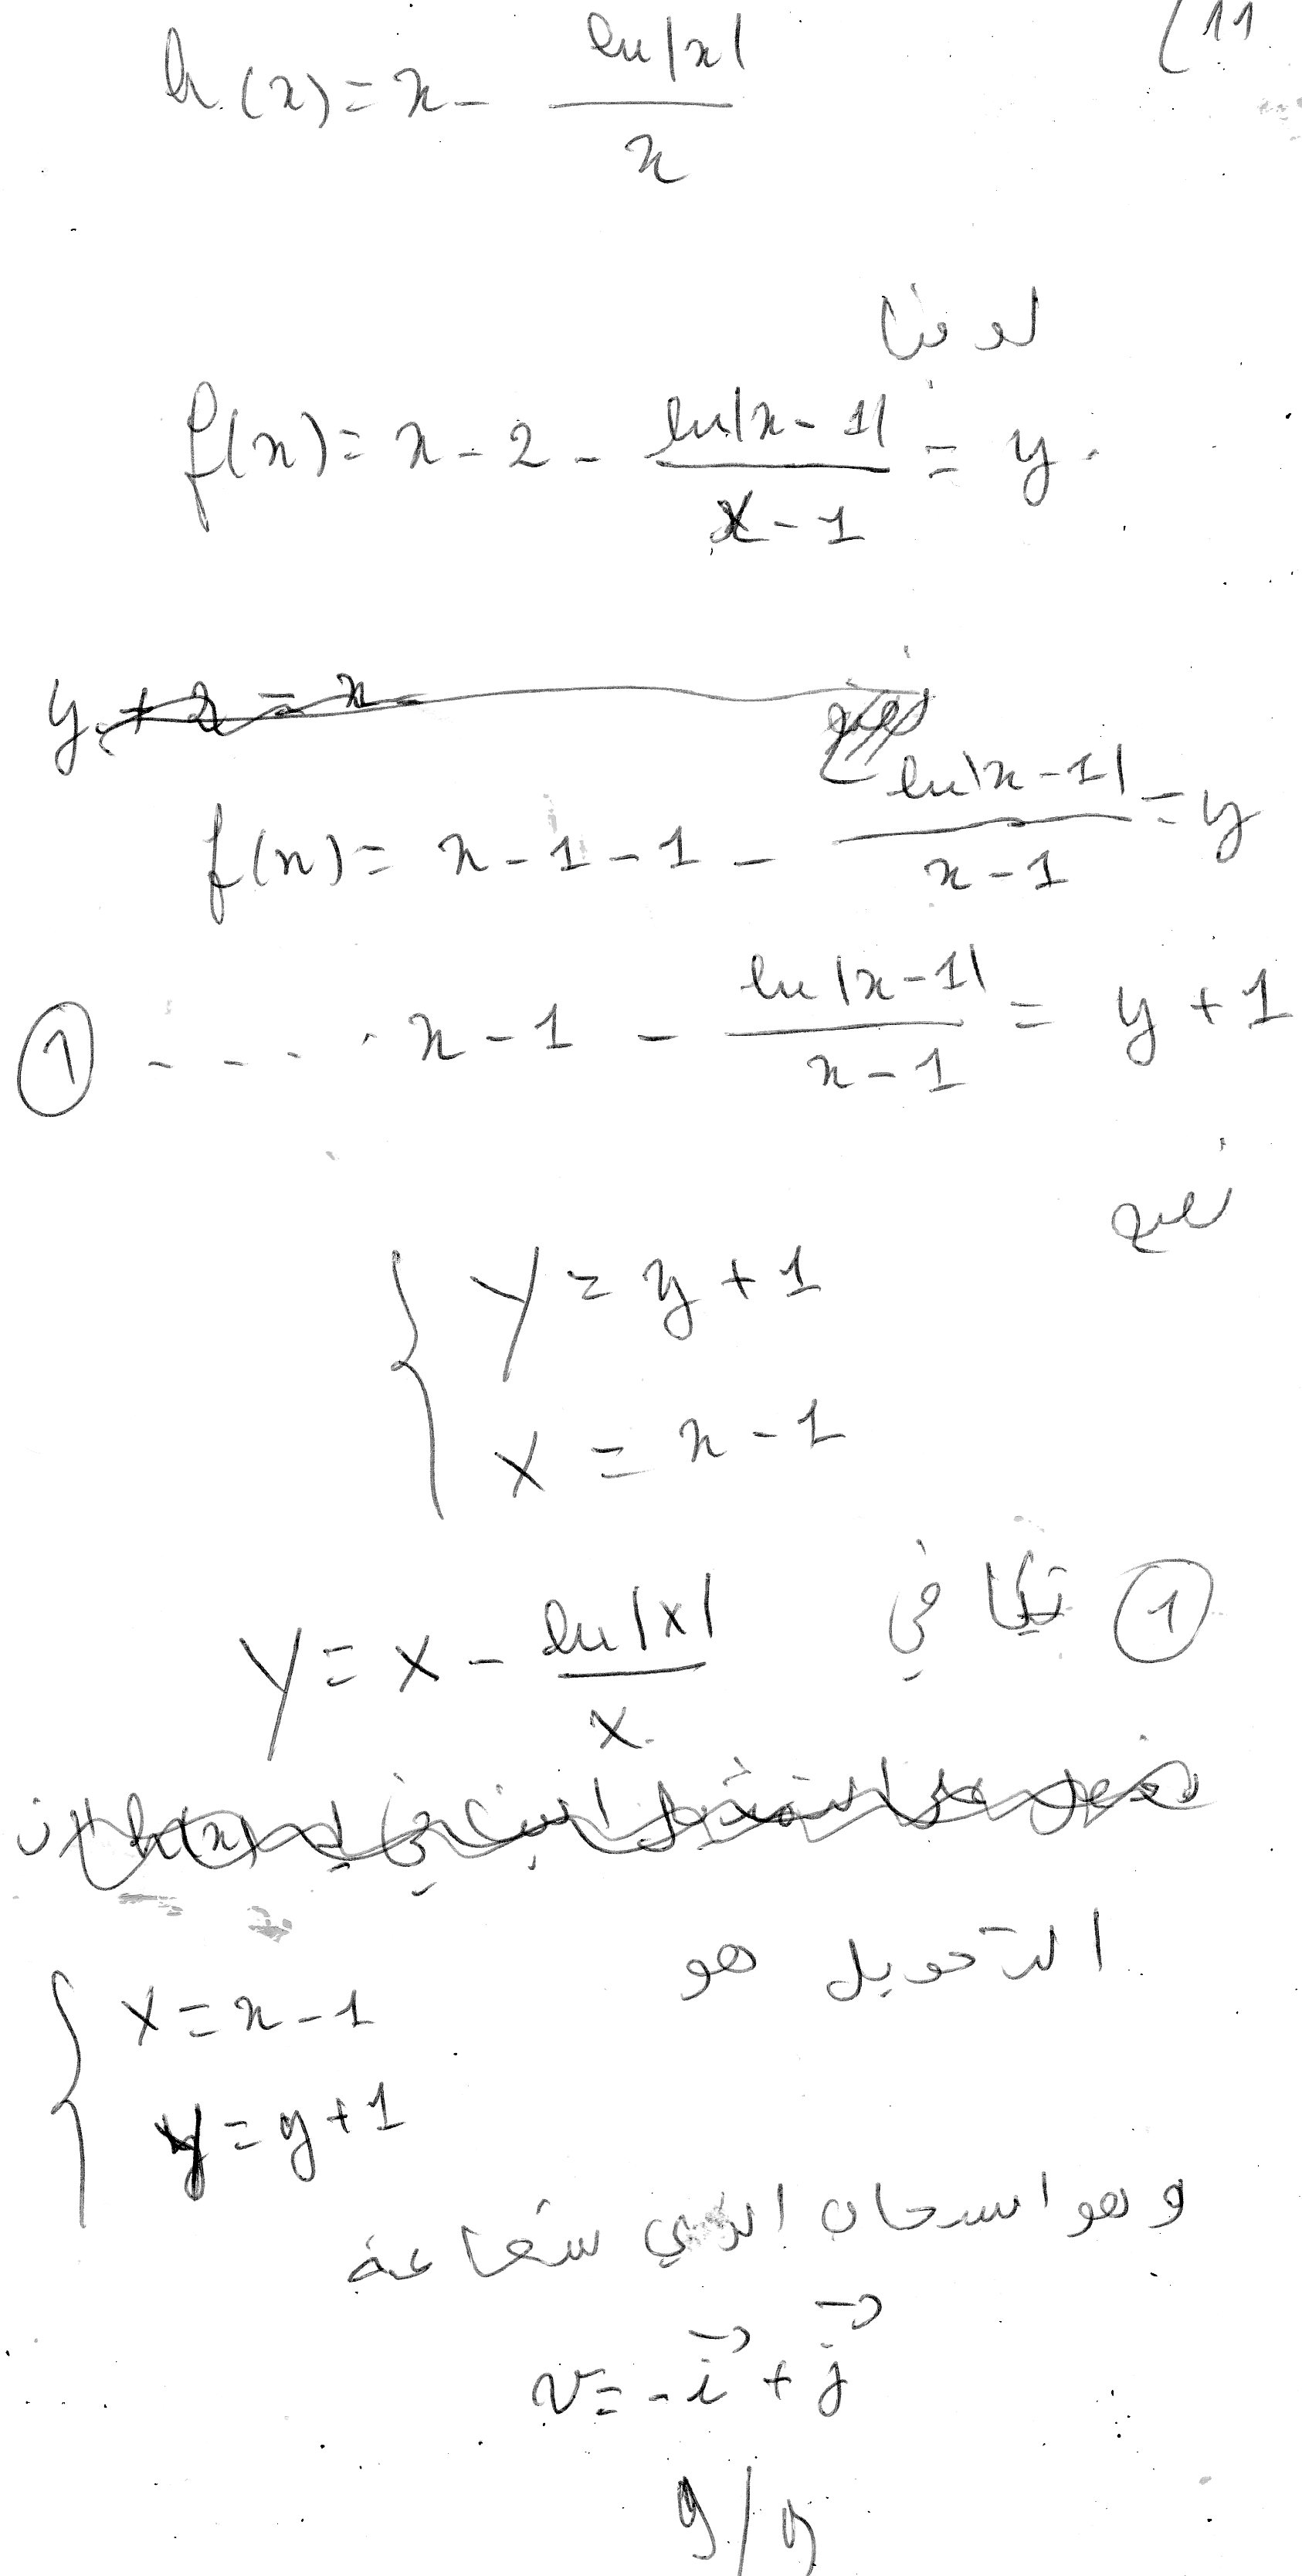 11)
h(x) = x - ln|x| / x
لدينا
f(x) = x - 2 - ln|x-1| / x-1 = y
y + 2 = x -
f(x) = x - 1 - 1 - ln|x-1| / x-1 = y
① - - - · x - 1 - ln|x-1| / x-1 = y + 1
نضع
{ Y = y + 1
X = x - 1
① تكافئ
Y = X - ln|X| / X
التحويل هو
{ X = x - 1
Y = y + 1
وهو انسحاب الذي شعاعه
v = -i + j
9/9